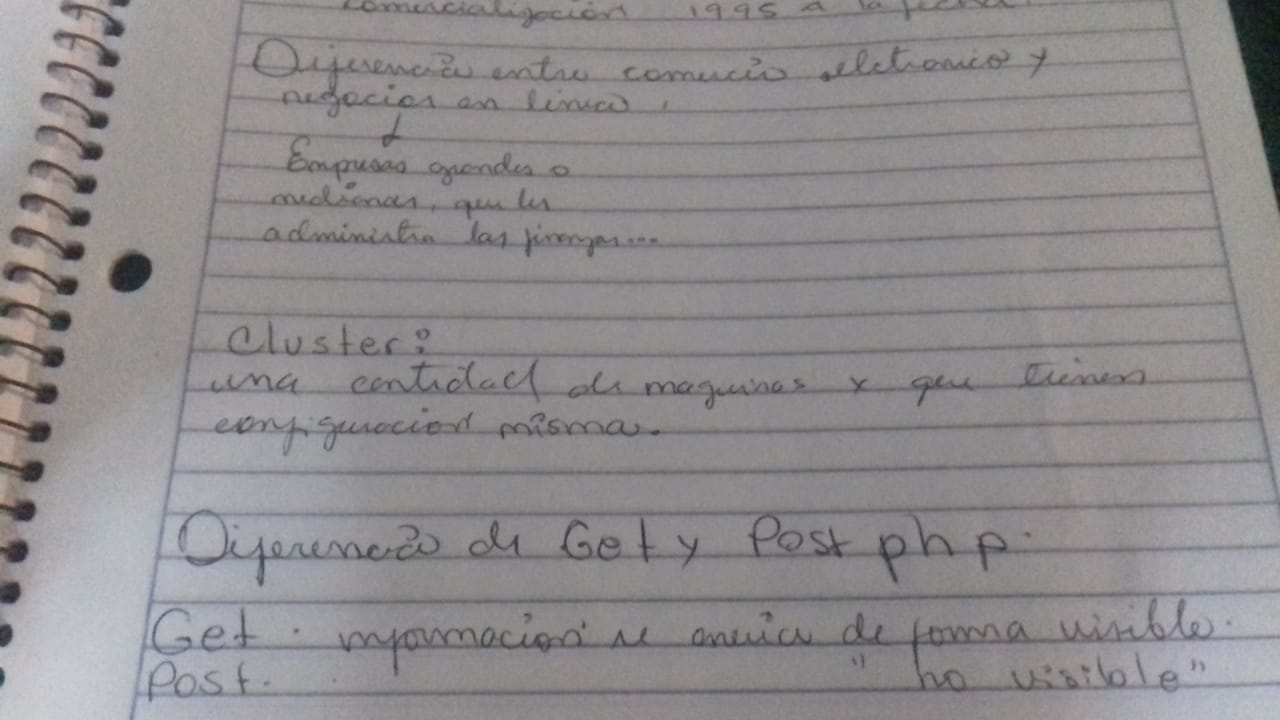 comercialización 1995 a la fecha
Diferencia entre comercio eletronico y
negocios en linea.
Empresas grandes o
medianas, que les
administra las finanzas...
Cluster:
una cantidad de maquinas x que tienen
configuracion misma.
Diferencia de Get y Post php.
Get. informacion se envia de forma visible.
Post. " no visible"